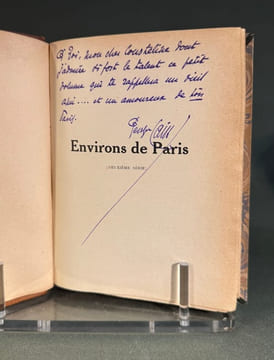 à toi, mon cher Constatine dont
j'admire si fort le talent ce petit
volume qui te rappellera un vieil
ami.... et un amoureux de ton
Paris.
Georges Cain
Environs de Paris
(DEUXIÈME SÉRIE)